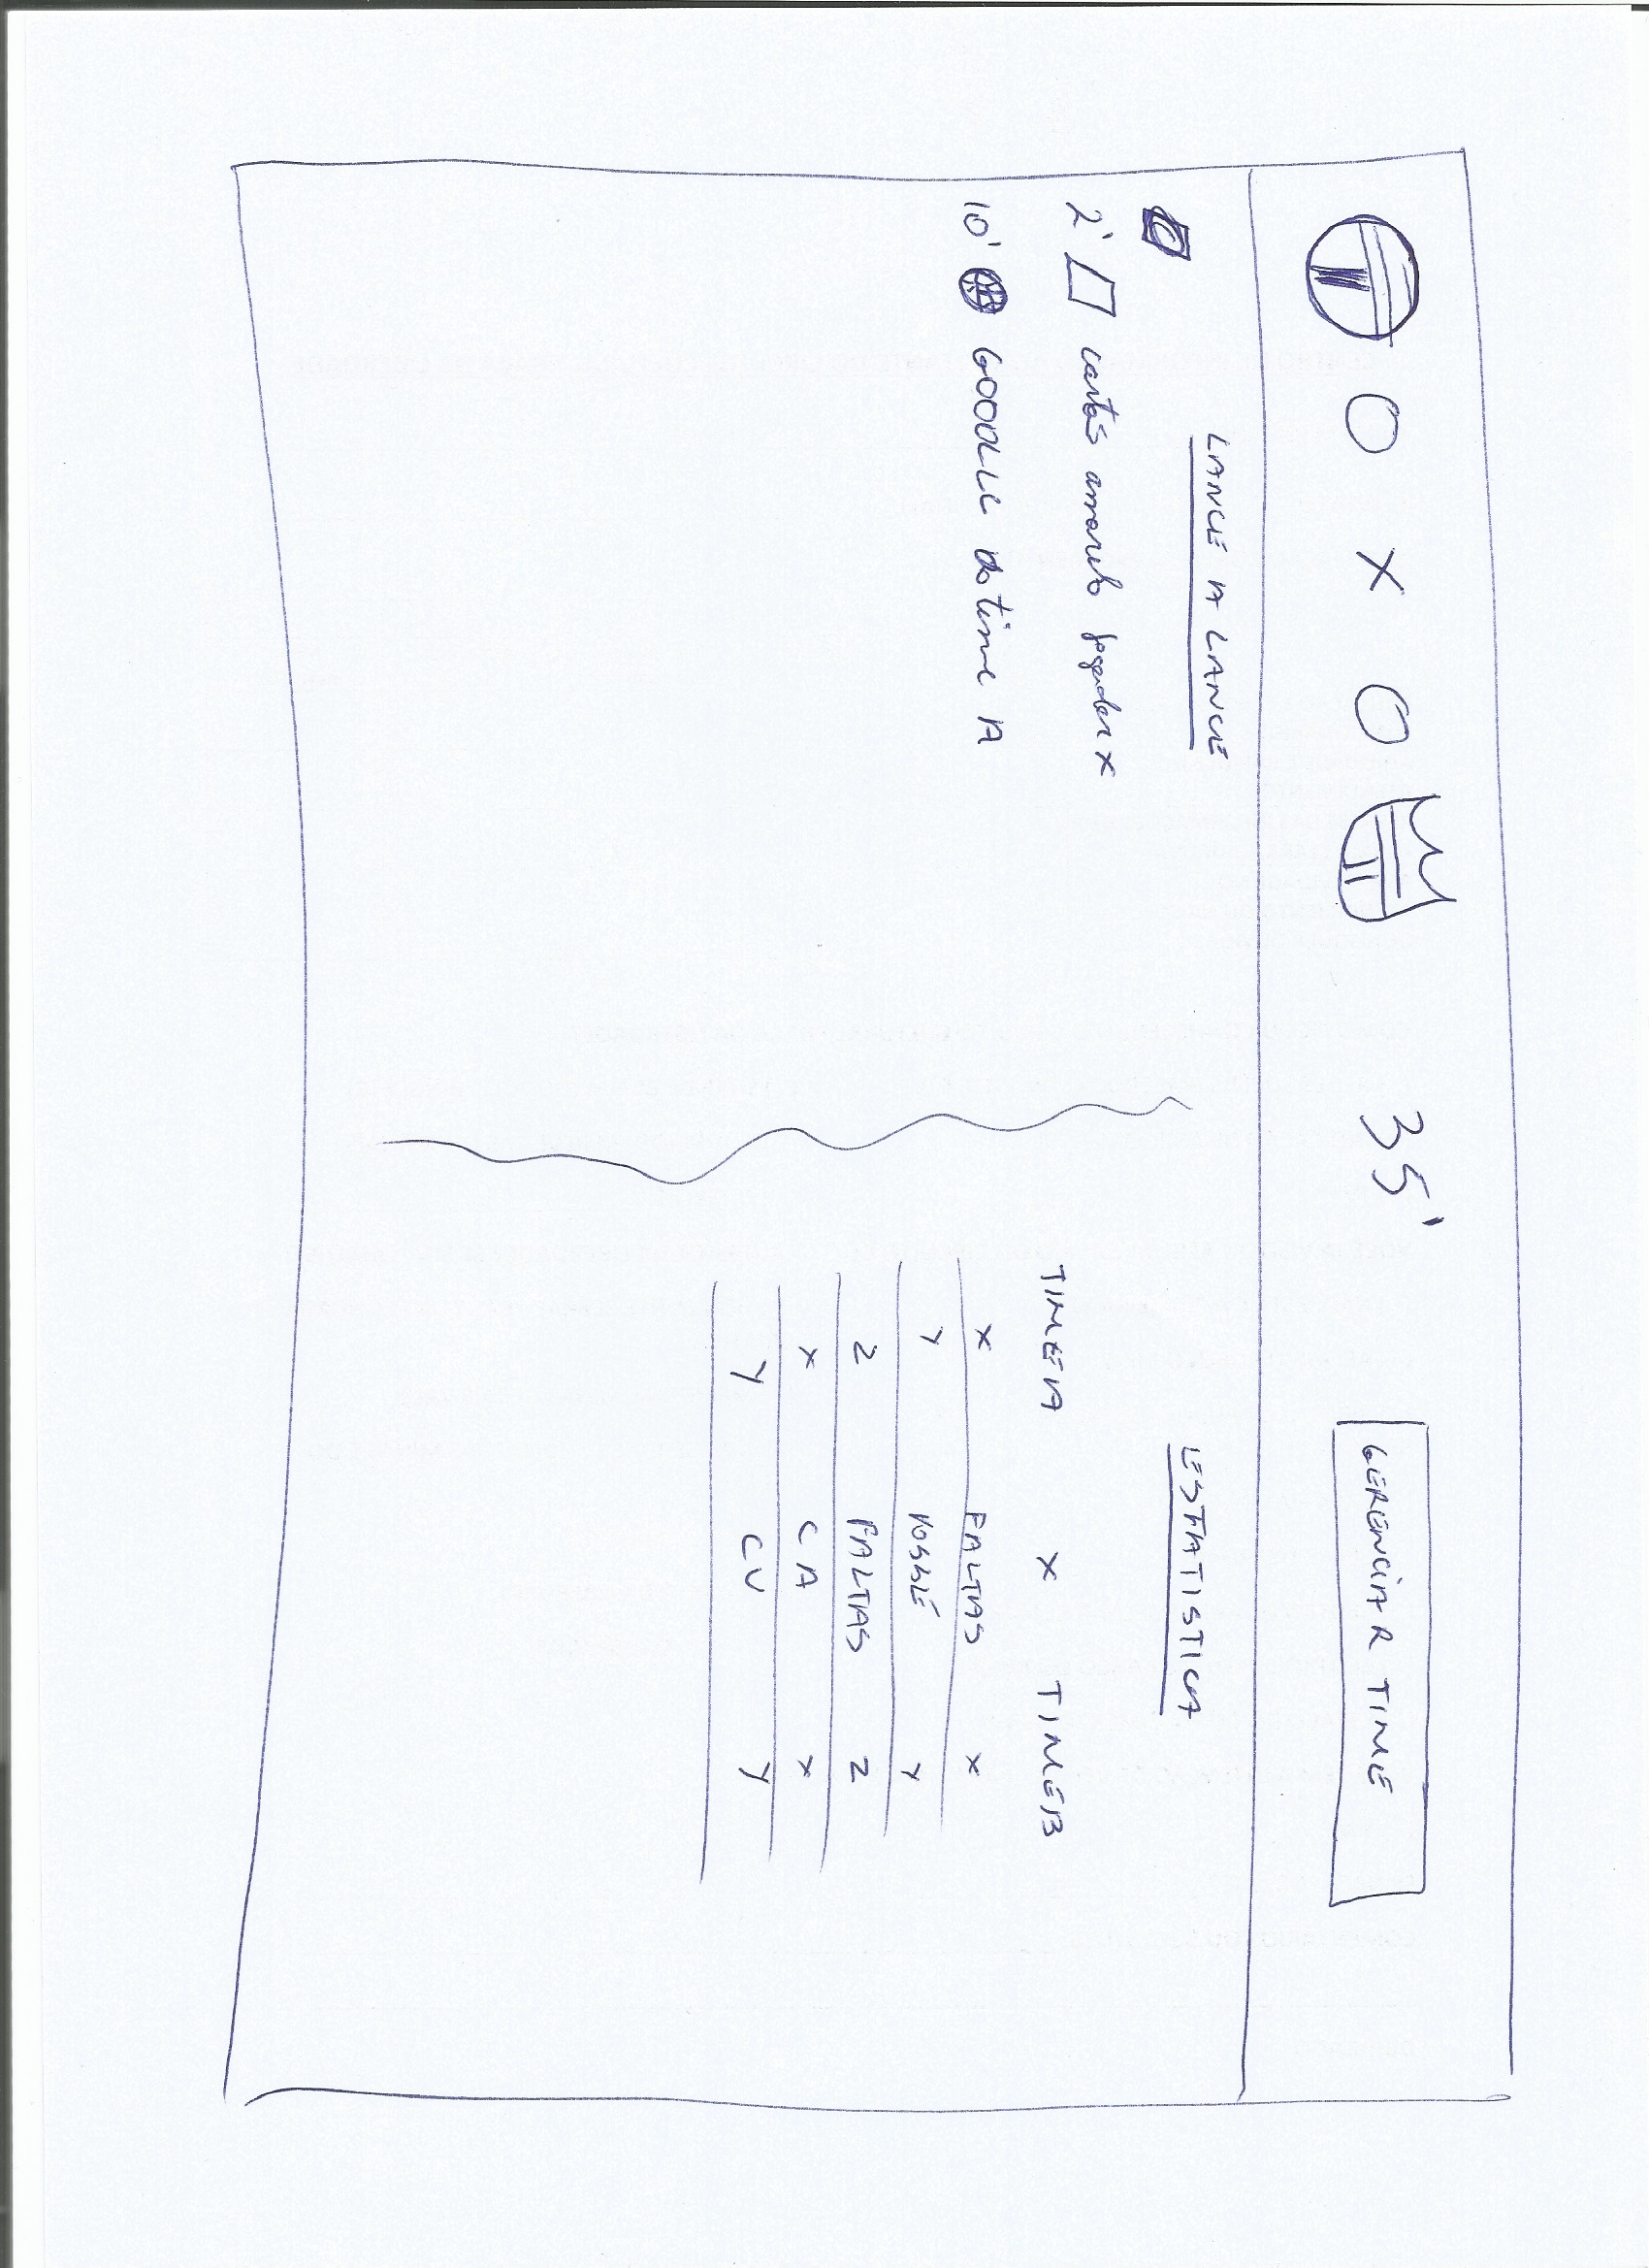 0 x 0 35' GERENCIAR TIME
LANCE A LANCE
2' cartão amarelo jogador x
10' GOOOLL do time A
ESTATISTICA
TIME A x TIME B
x FALTAS x
Y POSSE Y
2 FALTAS 2
x CA x
y CV y